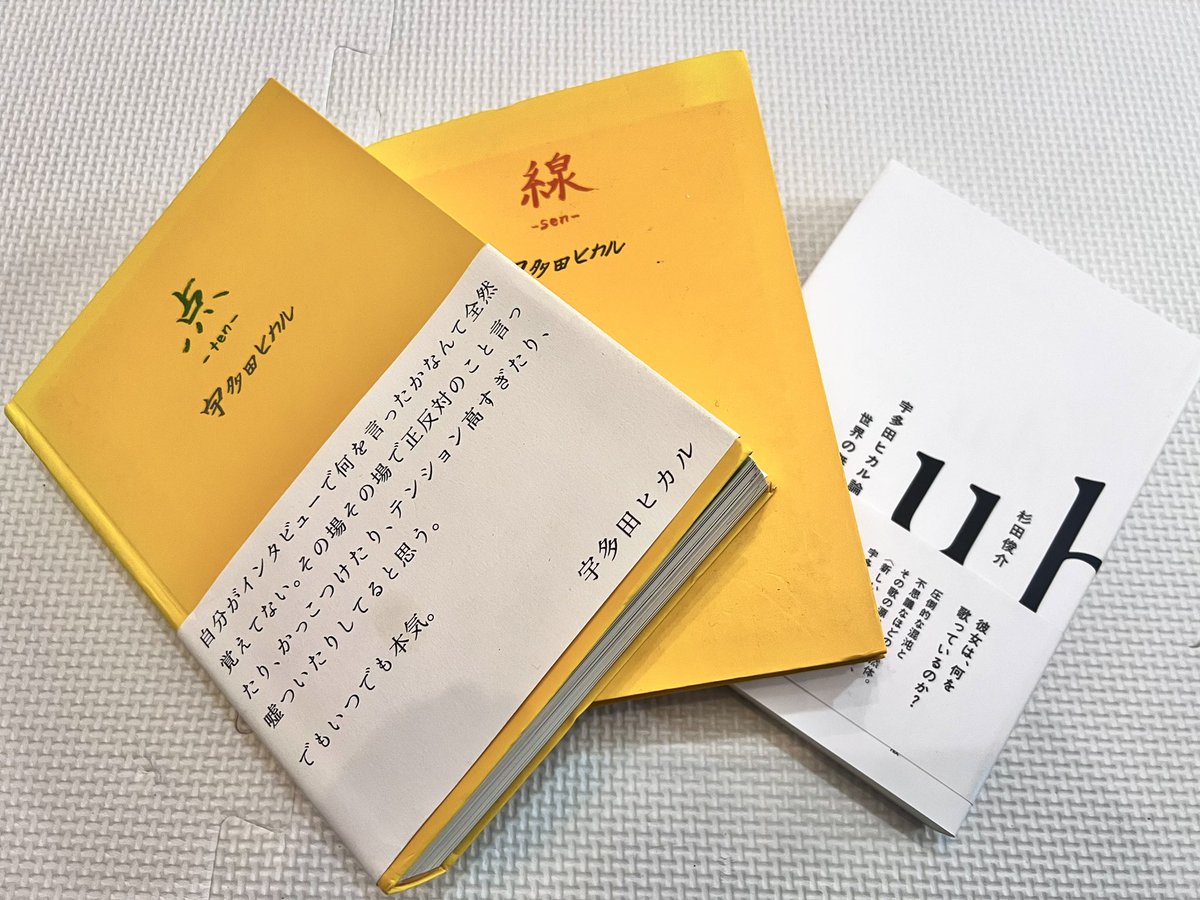 点
-ten-
宇多田ヒカル
自分がインタビューで何を言ったかなんて全然
覚えてない。その場その場で正反対のこと言っ
たり、かっこつけたり、テンション高すぎたり、
嘘ついたりしてると思う。
でもいつでも本気。
宇多田ヒカル
線
-sen-
宇多田ヒカル
宇多田ヒカル論
世界の
uh
杉田俊介
彼女は、何を
歌っているのか?
圧倒的な混沌と
不思議なほどの
その歌の源
〈新しい